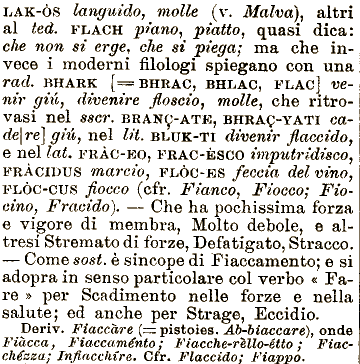 LAK-ÒS languido, molle (v. Malva), altri
al ted. FLACH piano, piatto, quasi dica:
che non si erge, che si piega; ma che in-
vece i moderni filologi spiegano con una
rad. BHARK [= BHRAC, BHLAC, FLAC] ve-
nir giú, divenire floscio, molle, che ritro-
vasi nel sscr. BRANÇ-ATE, BHRAÇ-YATI ca-
de[re] giú, nel lit. BLUK-TI divenir flaccido,
e nel lat. FRÀC-EO, FRAC-ÈSCO imputridisco,
FRÀCIDUS marcio, FLÒC-ES feccia del vino,
FLÒC-CUS fiocco (cfr. Fianco, Fiocco; Fio-
cino, Fracido). — Che ha pochissima forza
e vigore di membra, Molto debole, e al-
tresì Stremato di forze, Defatigato, Stracco.
— Come sost. è sincope di Fiaccamento; e si
adopra in senso particolare col verbo « Fa-
re » per Scadimento nelle forze e nella
salute; ed anche per Strage, Eccidio.
Deriv. Fiaccàre (= pistoies. Ab-biaccare), onde
Fiàcca, Fiaccaménto; Fiacche-rèllo-étto; Fiac-
chézza; Infiacchíre. Cfr. Flaccido; Fiappo.